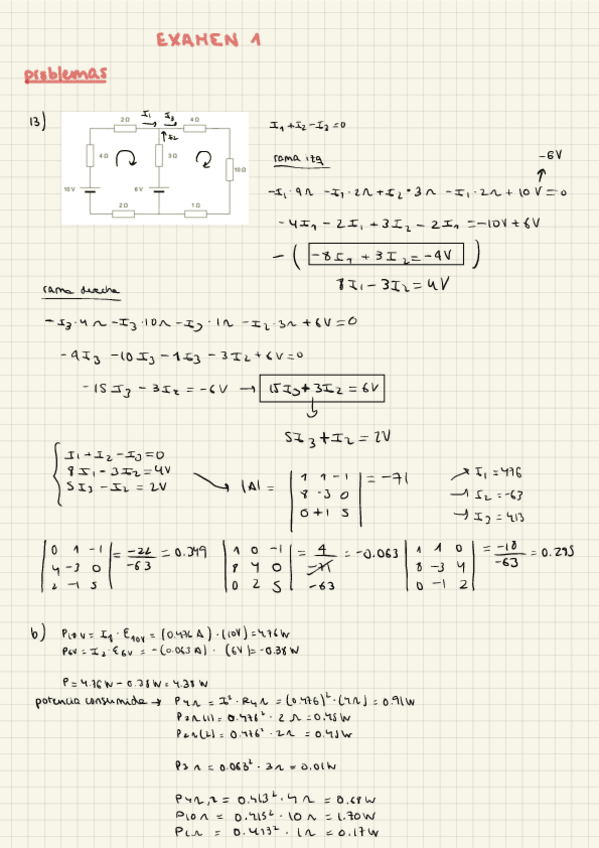 EXAMEN 1
problemas
13)
2Ω I₁ I₃ 4Ω
I₂
4Ω 3Ω 10Ω
10V 6V
2Ω 1Ω
I₁+I₂-I₃=0
rama izq
-6V
-I₁·4Ω -I₁·2Ω+I₂·3Ω -I₁·2Ω+10V=0
-4I₁-2I₁+3I₂-2I₁=-10V+6V
-(-8I₁+3I₂=-4V)
8I₁-3I₂=4V
rama derecha
-I₃·4Ω-I₃·10Ω-I₃·1Ω-I₂·3Ω+6V=0
-4I₃-10I₃-1I₃-3I₂+6V=0
-15I₃-3I₂=-6V → 15I₃+3I₂=6V
5I₃+I₂=2V
I₁+I₂-I₃=0
8I₁-3I₂=4V
5I₃-I₂=2V
|A|= 1 1 -1 = -71
8 -3 0
0 +1 5
I₁=476
I₂=-63
I₃=413
0 1 -1
4 -3 0
2 -1 5
-63 = 0.349
1 0 -1
8 4 0
0 2 5
4
-71 = -0.063
-63
1 1 0
8 -3 4
0 -1 2
-18
-63 = 0.295
b) P10V=I₁·ε10V=(0.476A)·(10V)=4.76W
P6V=I₂·ε6V=-(0.063A)·(6V)=-0.38W
P=4.76W-0.38W=4.38W
potencia consumida → P4Ω=I²·R4Ω=(0.476)²·(4Ω)=0.91W
P2Ω(1)=0.476²·2Ω=0.45W
P2Ω(2)=0.476²·2Ω=0.45W
P3Ω=0.063²·3Ω=0.01W
P4Ω,2=0.413²·4Ω=0.68W
P10Ω=0.413²·10Ω=1.70W
P1Ω=0.413²·1Ω=0.17W